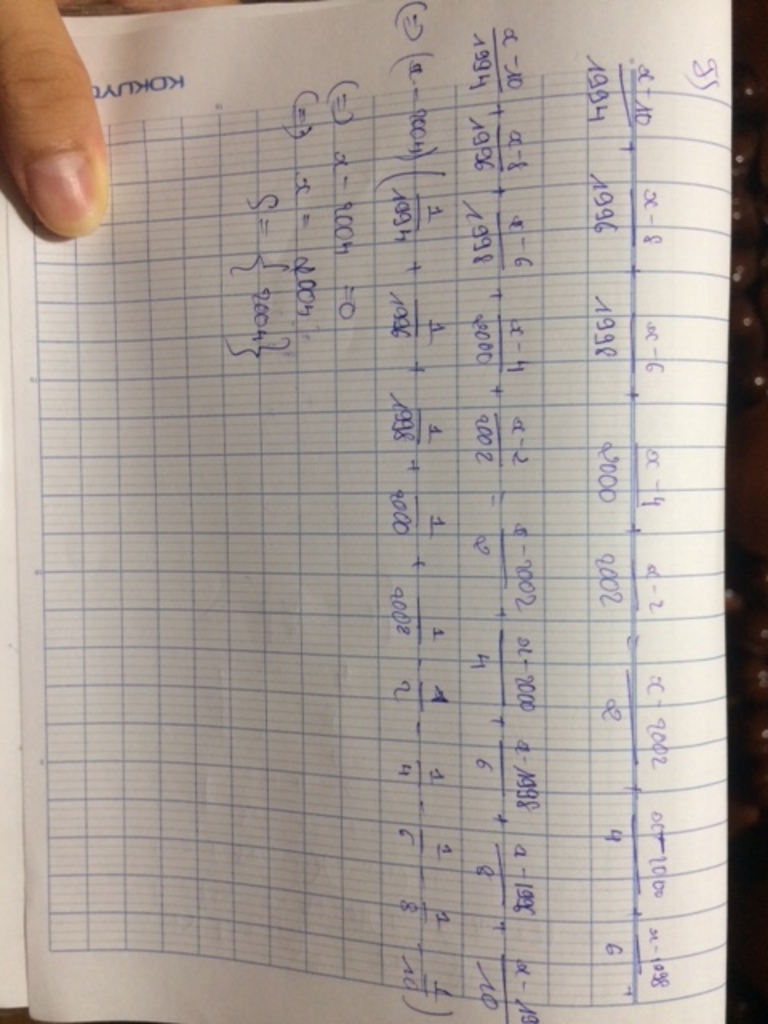 5)
x-10/1994 + x-8/1996 + x-6/1998 + x-4/2000 + x-2/2002 = x-2002/2 + x-2000/4 + x-1998/6 +
x-10/1994 + x-8/1996 + x-6/1998 + x-4/2000 + x-2/2002 = x-2002/2 + x-2000/4 + x-1998/6 + x-1996/8 + x-19/10
(=) (x-2004) (1/1994 + 1/1996 + 1/1998 + 1/2000 + 1/2002 - 1/2 - 1/4 - 1/6 - 1/8 - 1/10)
(=) x - 2004 = 0
(=) x = 2004
S = {2004}
KOKUYO